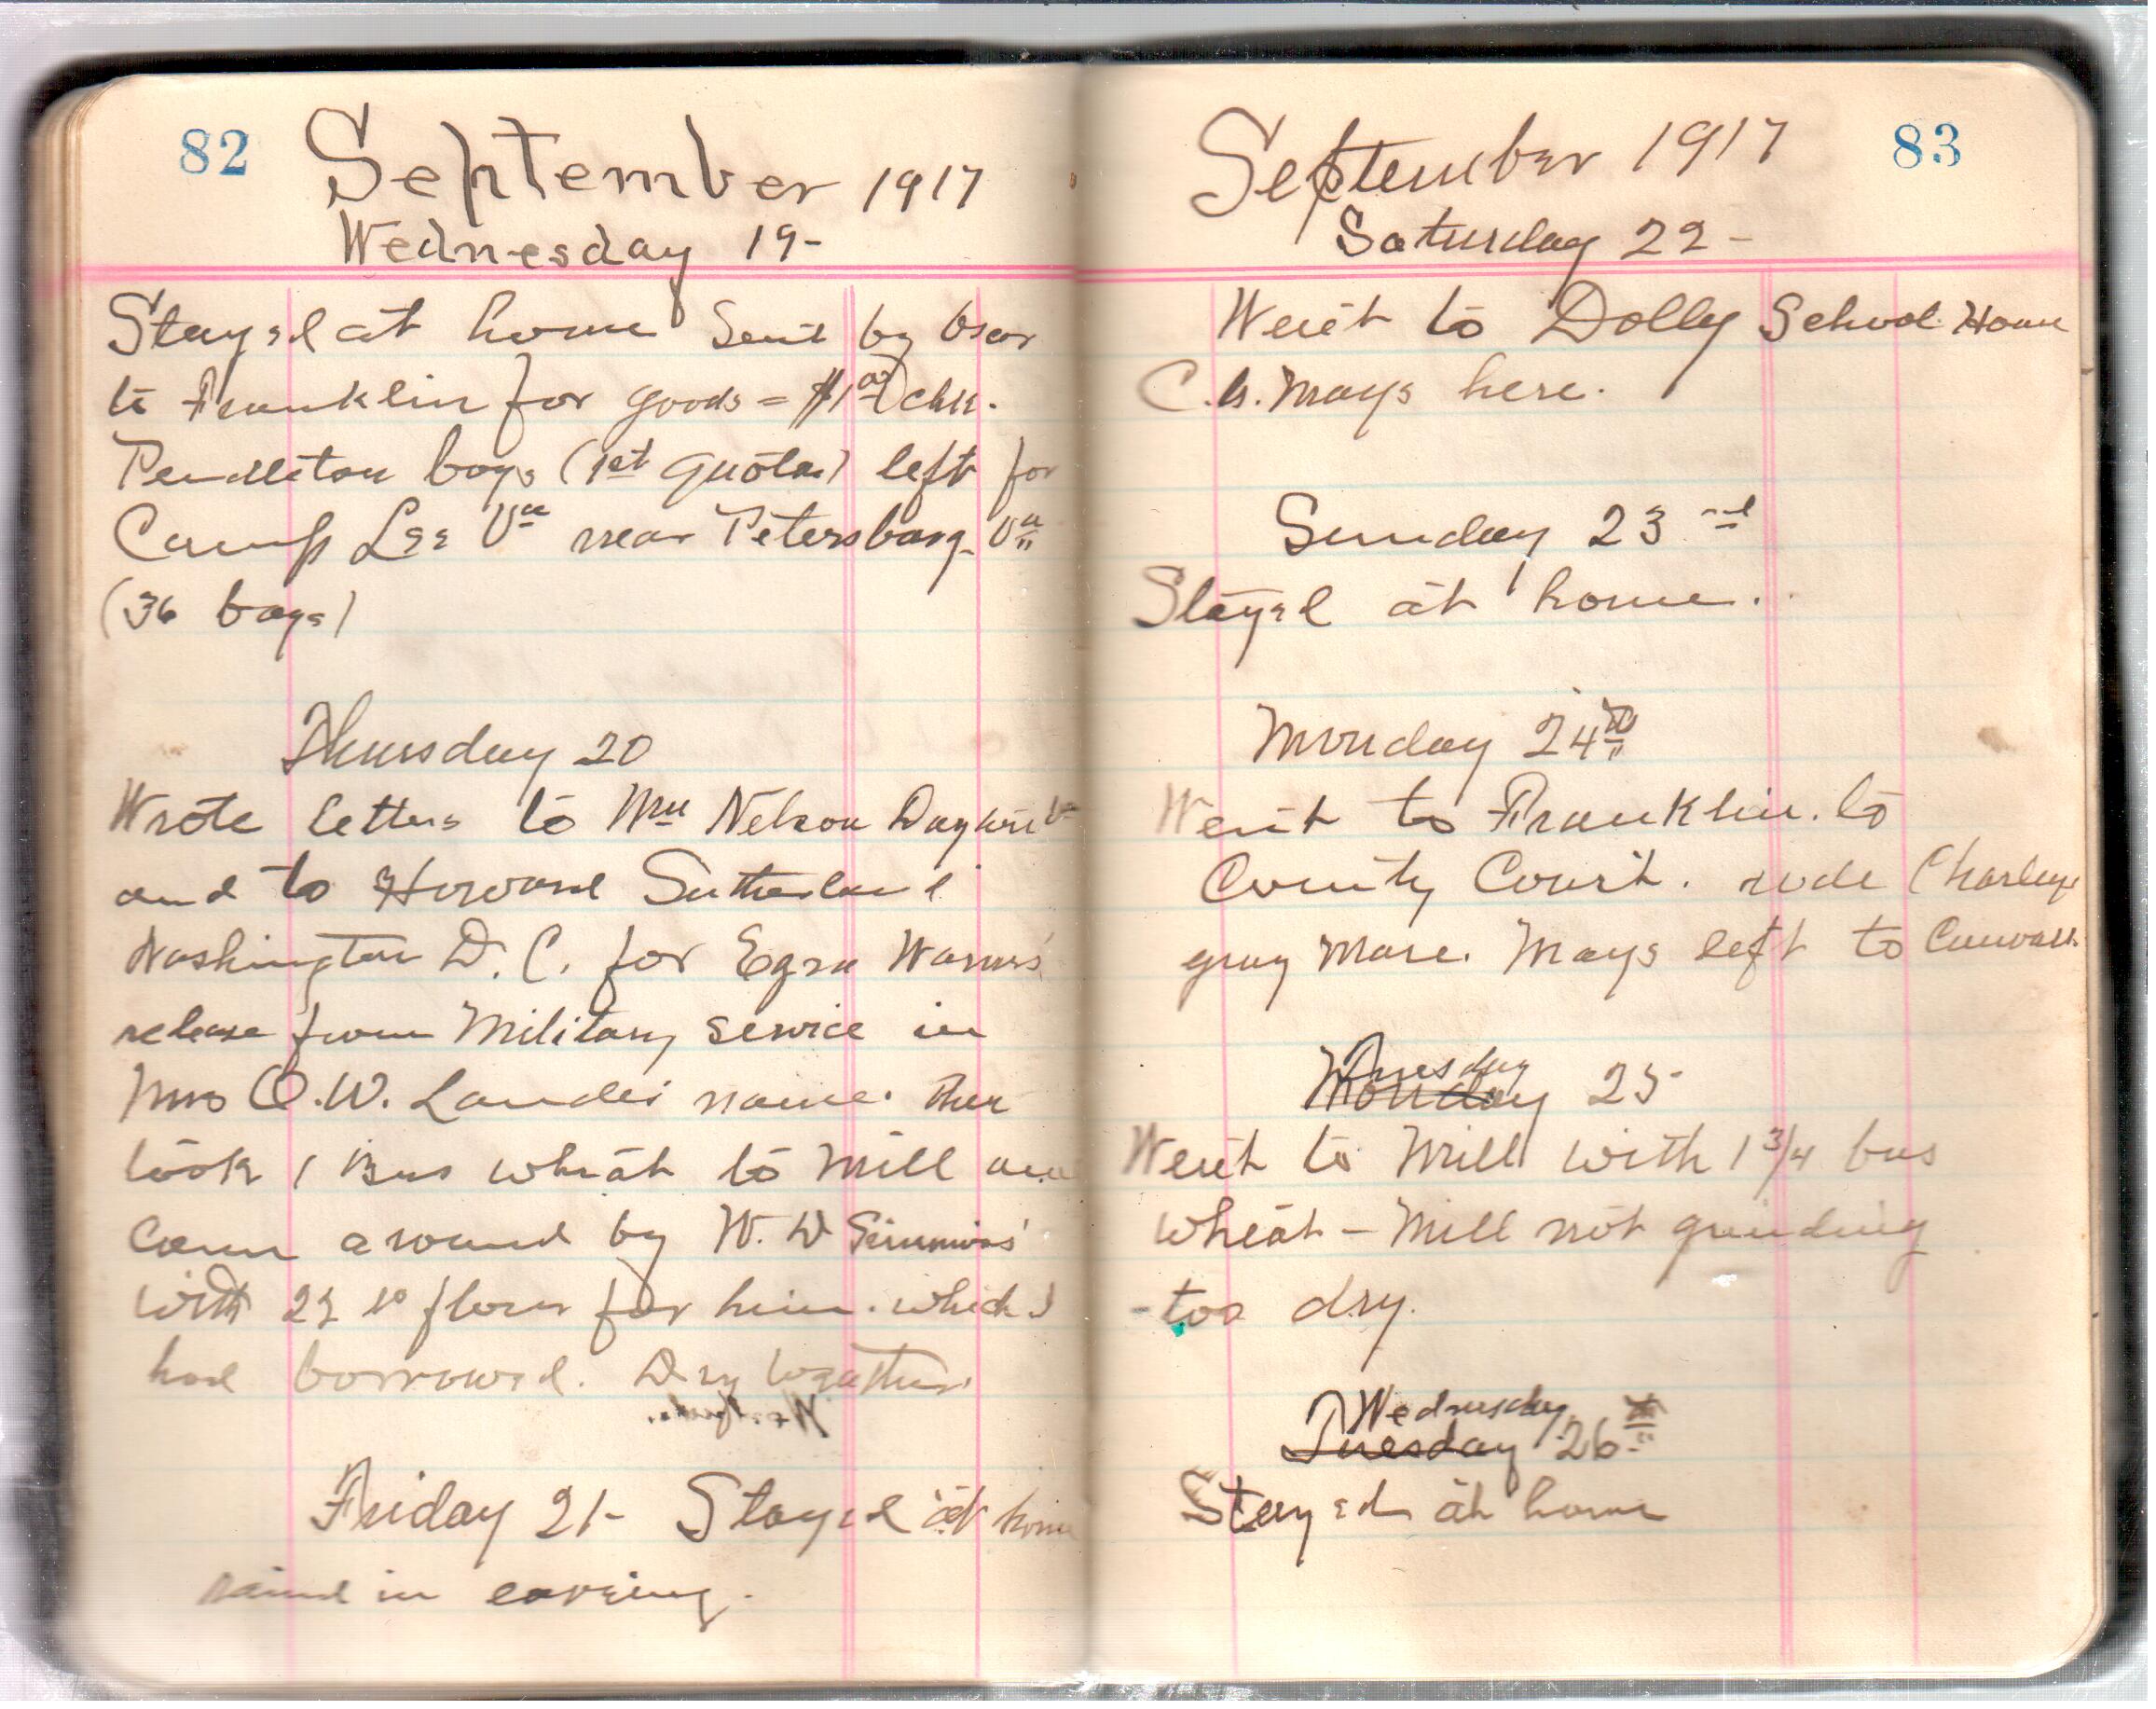 82
September 1917
Wednesday 19-
Stayed at home Sent by Oscar
to Franklin for goods = $1 00 chk.
Pendleton boys (1st quota) left for
Camp Lee Va near Petersburg Va
(36 boys)
Thursday 20
Wrote letters to Wm Nelson
and to Howard Sutherland
Washington D. C. for Ezra
release from Military service in
Mrs O.W. Landes name. Then
took 1 Bus wheat to Mill and
Came around by W. D Simmons'
with flour for him. which I
had borrowed. Dry weather
Friday 21- Stayed at home
raind in evening.
83
September 1917
Saturday 22-
Went to Dolly School House
C. Mays here.
Sunday 23 rd
Stayed at home.
Monday 24th
Went to Franklin. to
County Court. rode Charleys
gray Mare. Mays left to Canvass.
Tuesday
Monday 25-
Went to Mill with 1 3/4 bus
wheat - Mill not grinding
- too dry.
Wednesday
Tuesday 26th
Stayed at home